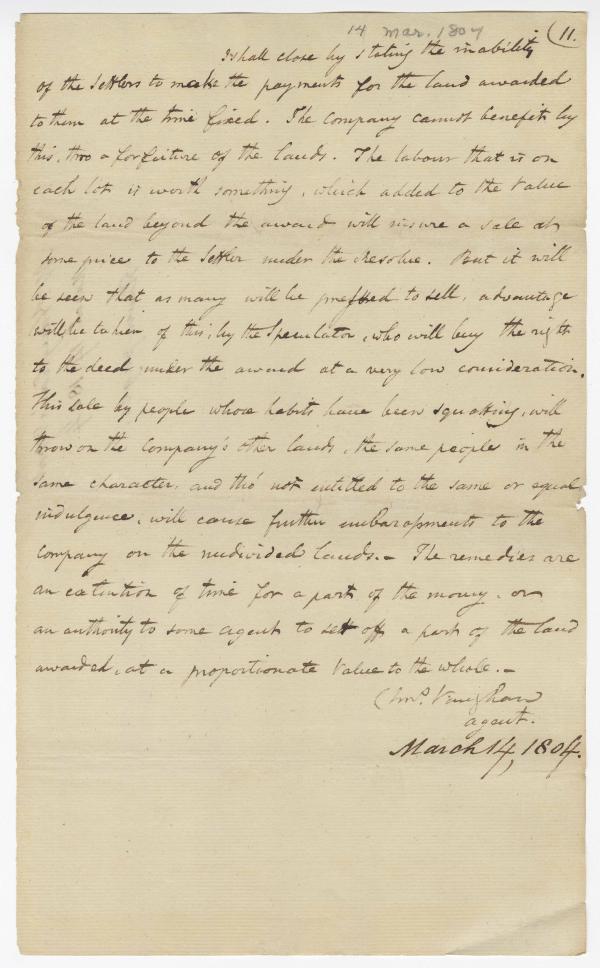 14 Mar. 1804
11.
I shall close by stating the inability
of the Settlers to make the payments for the land awarded
to them at the time fixed. The Company cannot benefit by
this, thro a forfuiture of the lands. The labour that is on
each lot is worth something, which added to the Value
of the land beyond the award will insure a sale at
some price to the Settler under the resolve. But it will
be seen that as many will be pressed to sell, advantage
will be taken of this, by the Speculator, who will buy the right
to the deed under the award at a very low consideration.
This sale by people whose habits have been squatting, will
throw on the Company's other lands, the same people in the
same character, and tho' not entitled to the same or equal
indulgence, will cause further embarassments to the
Company on the undivided lands. - The remedies are
an extention of time for a part of the money, or
an authority to some agent to set off a part of the land
awarded, at a proportionate Value to the whole. -
Vaughan
agent.
March 14, 1804.